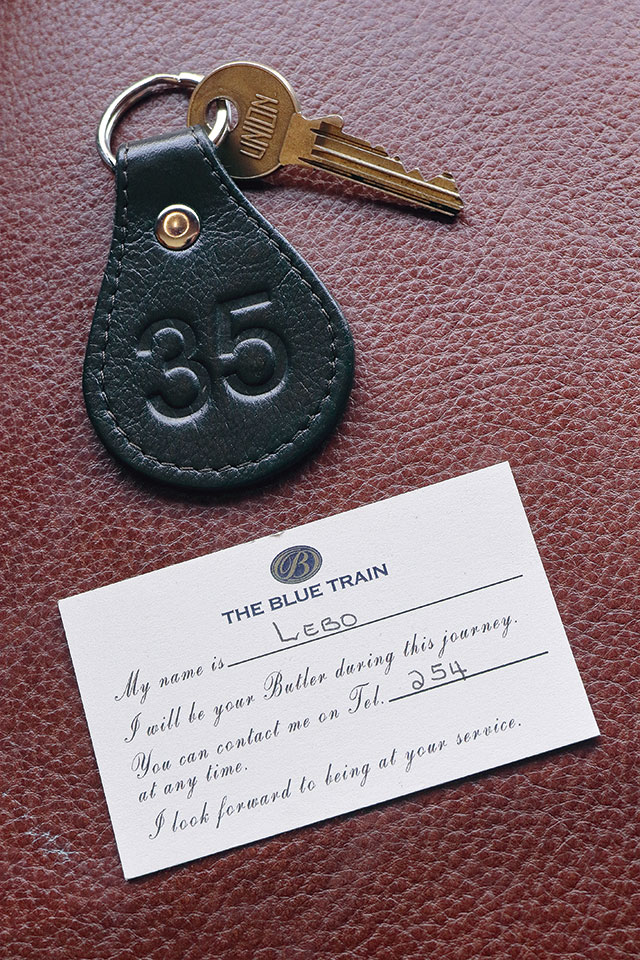 UNION
35
B
THE BLUE TRAIN
My name is LEBO
I will be your Butler during this journey.
You can contact me on Tel. 254
at any time.
I look forward to being at your service.